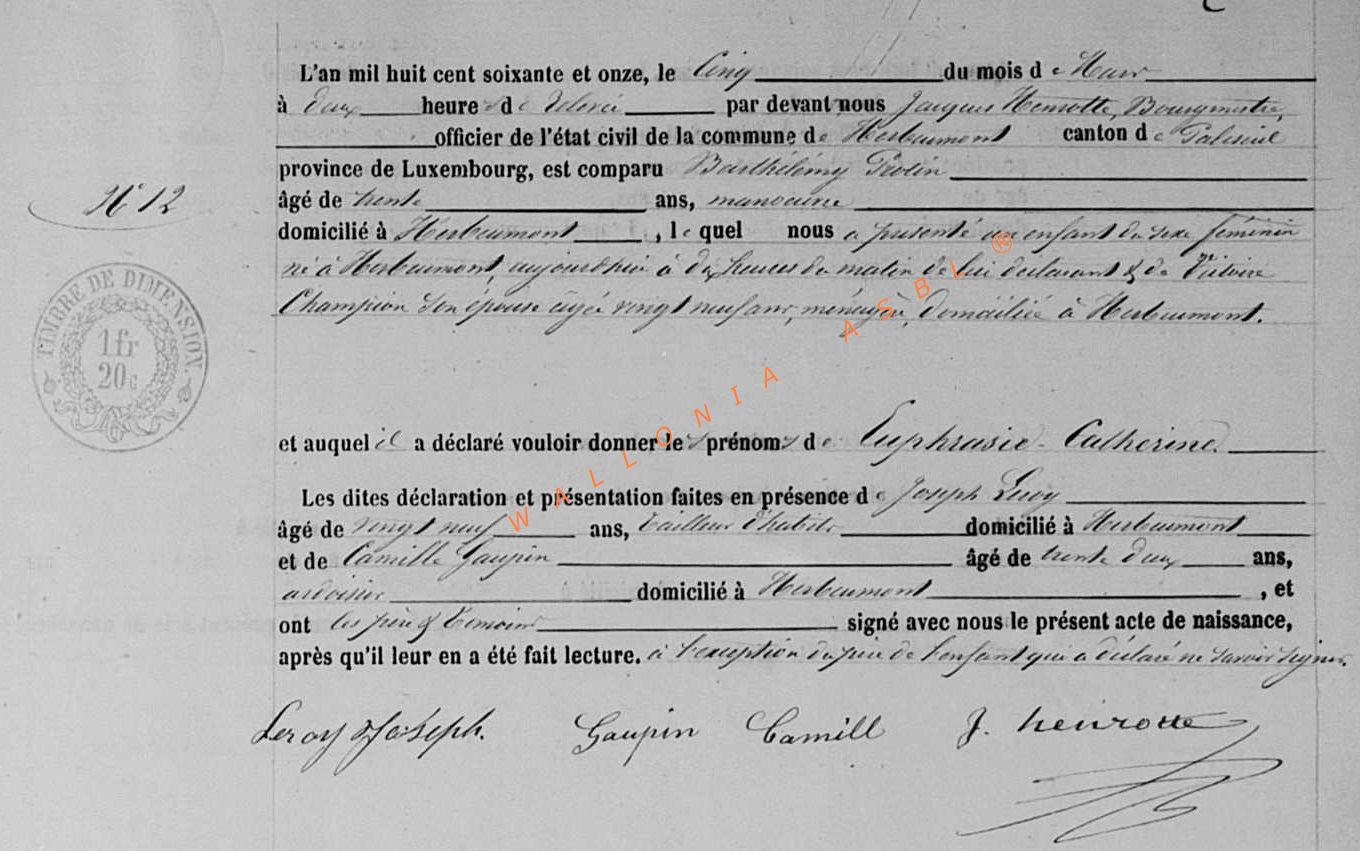 L'an mil huit cent soixante et onze, le Cinq du mois de Mars
à deux heures de relevée par devant nous Jacques Henrotte, Bourgmestre,
officier de l'état civil de la commune de Herbeumont canton de Paliseul
province de Luxembourg, est comparu Barthélémy
âgé de trente ans, manoeuvre
domicilié à Herbeumont, lequel nous a présenté un enfant du sexe féminin
N° 12
né à Herbeumont, aujourdhui à dix heures du matin de lui déclarant & de Victoire
Champion son épouse agée vingt neuf ans, ménagère, domiciliée à Herbeumont.
TIMBRE DE DIMENSION.
1fr
20c
et auquel il a déclaré vouloir donner les prénoms de Euphrasie-Catherine.
Les dites déclaration et présentation faites en présence de Joseph Leroy
âgé de vingt neuf ans, tailleur d'habits domicilié à Herbeumont
et de Camille Gaupin âgé de trente deux ans,
ardoisier domicilié à Herbeumont, et
ont les père & temoins signé avec nous le présent acte de naissance,
après qu'il leur en a été fait lecture. à l'exception du père de l'enfant qui a déclaré ne savoir signer.
Leroy Joseph. Gaupin Camill J. henrotte
WALLONIA ASBL ®